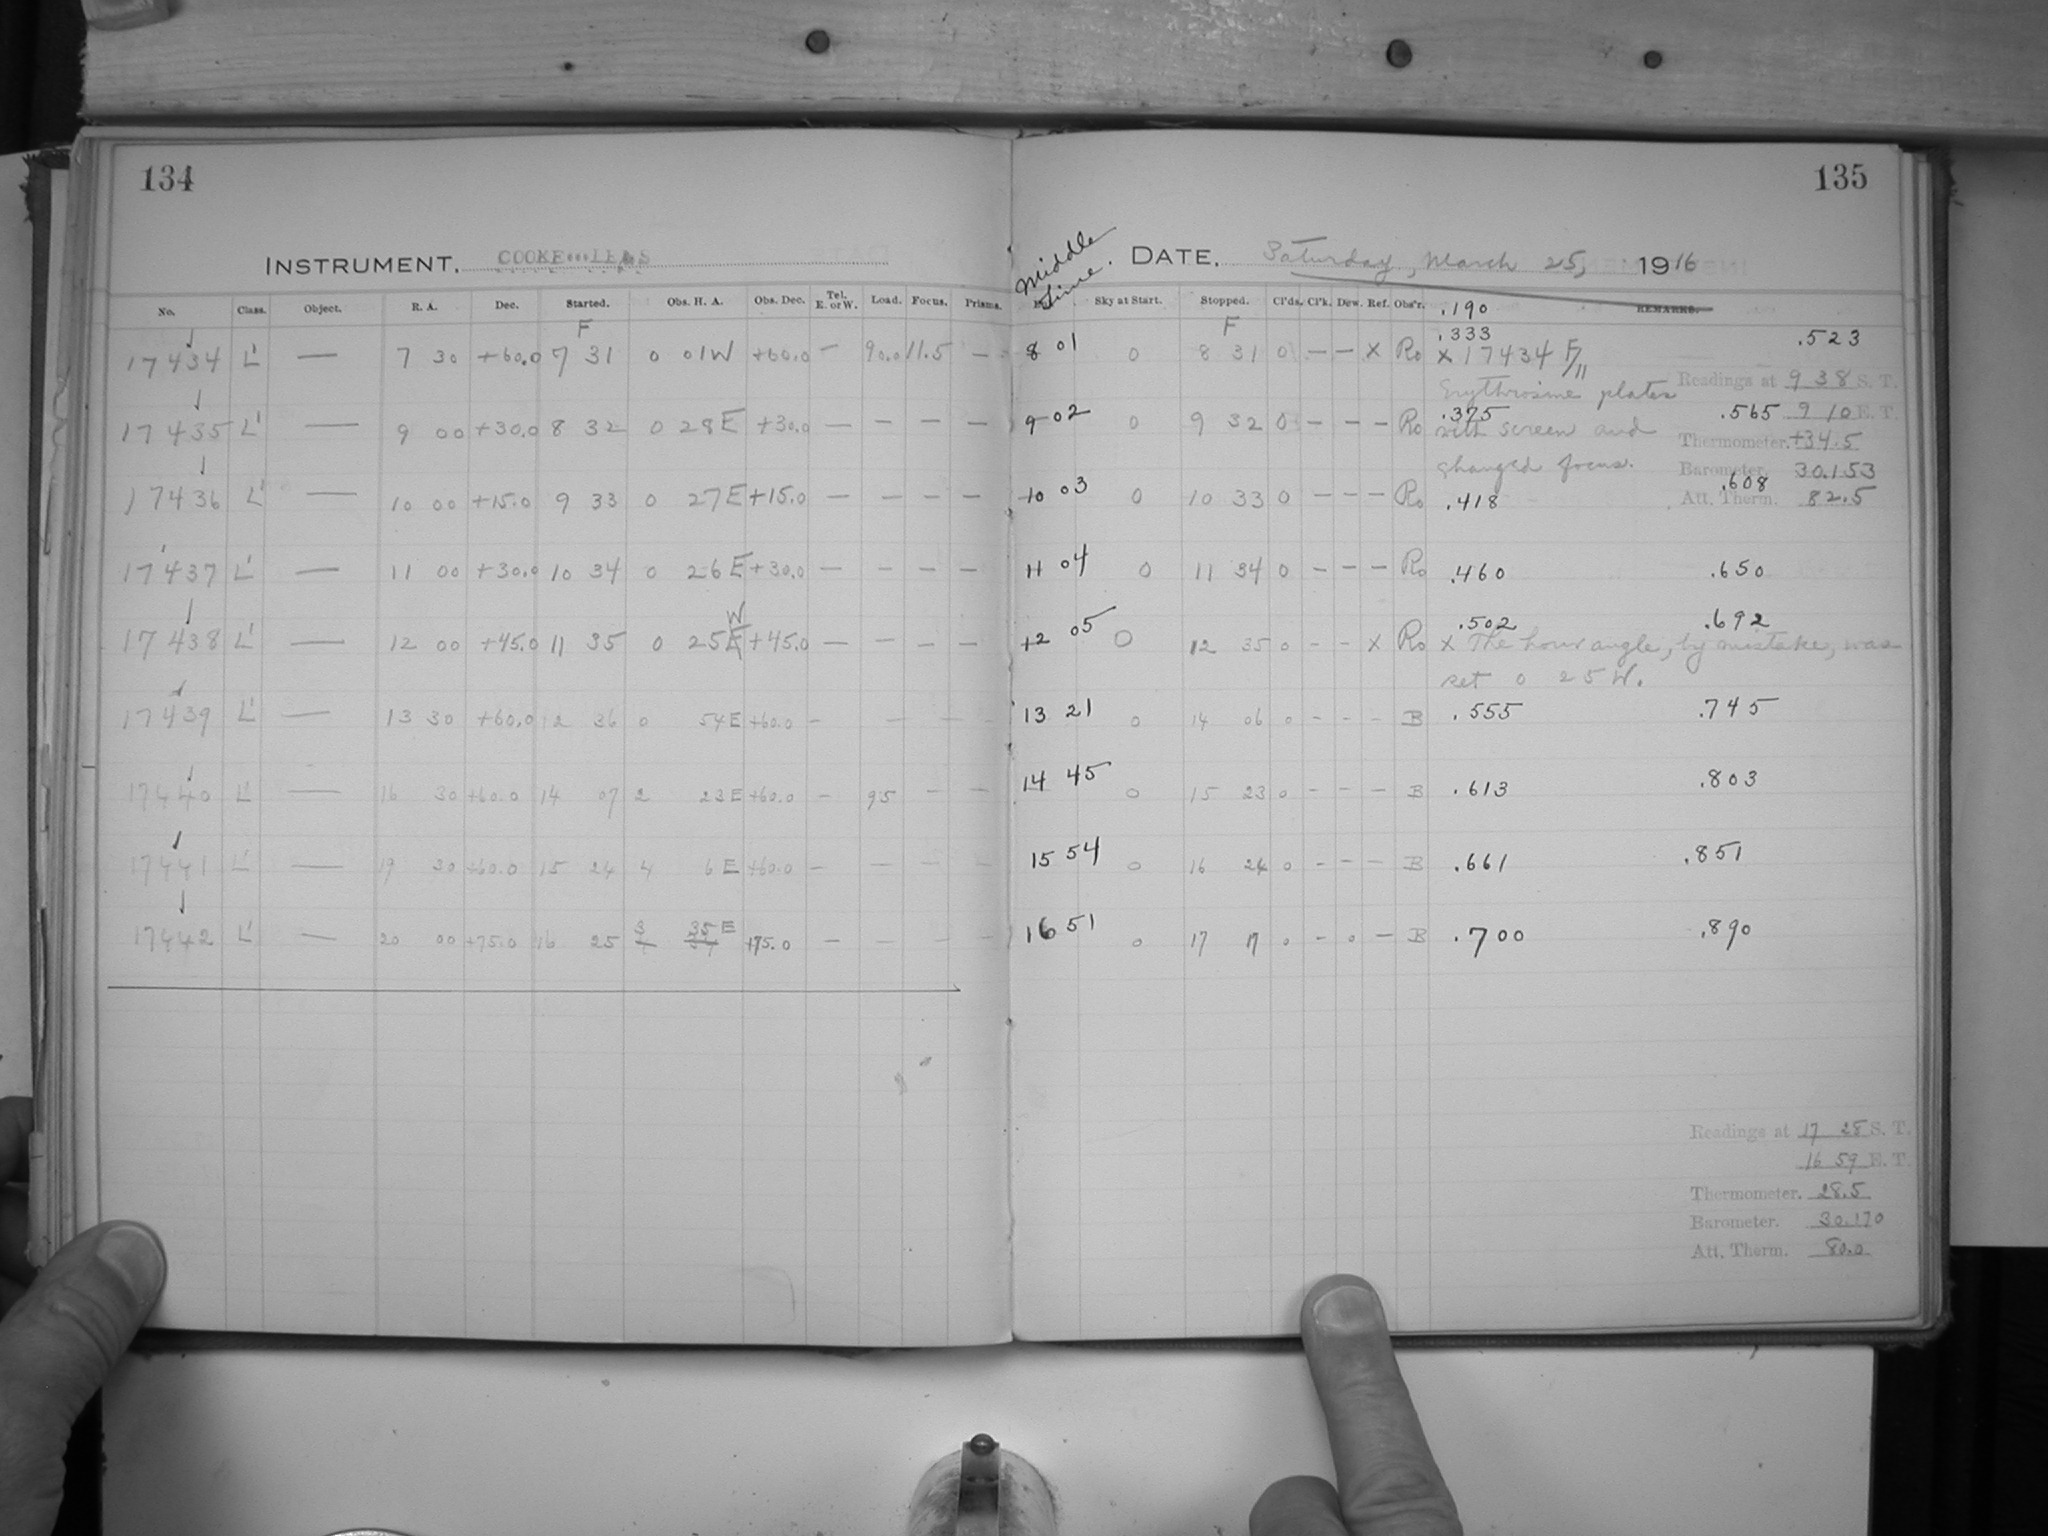 134
INSTRUMENT. COOKE LENS
No. Class. Object. R. A. Dec. Started. Obs. H. A. Obs. Dec. Tel. E. or W. Load. Focus. Prisms.
F
17434 L' — 7 30 +60.0 7 31 0 01W +60.0 — 90.0 11.5 —
17435 L' — 9 00 +30.0 8 32 0 28E +30.0 — — — —
17436 L' — 10 00 +15.0 9 33 0 27E +15.0 — — — —
17437 L' — 11 00 +30.0 10 34 0 26E +30.0 — — — —
W
17438 L' — 12 00 +45.0 11 35 0 25E +45.0 — — — —
17439 L' — 13 30 +60.0 12 36 0 54E +60.0 — — — —
17440 L' — 16 30 +60.0 14 07 2 23E +60.0 — 95 — —
17441 L' — 19 30 +60.0 15 24 4 6E +60.0 — — — —
3 35 E
17442 L' — 20 00 +75.0 16 25 +75.0 — — — —
135
Middle Time. DATE. Saturday, March 25, 1916
Sky at Start. Stopped. Cl'ds. Cl'k. Dew. Ref. Obs'r. .190 REMARKS.
F .333
8 01 0 8 31 0 — — x Ro x 17434 F/11 .523
Erythrosine plates Readings at 9 38 S. T.
9 02 0 9 32 0 — — — Ro .375 .565 9 10 E. T.
with screen and Thermometer. +34.5
changed focus. Barometer. 30.153
10 03 0 10 33 0 — — — Ro .418 .608 Att. Therm. 82.5
11 04 0 11 34 0 — — — Ro .460 .650
.502 .692
12 05 0 12 35 0 — — x Ro x The hour angle, by mistake, was
set 0 25 W.
13 21 0 14 06 0 — — — B .555 .745
14 45 0 15 23 0 — — — B .613 .803
15 54 0 16 24 0 — — — B .661 .851
16 51 0 17 17 0 — 0 — B .700 .890
Readings at 17 28 S. T.
16 59 E. T.
Thermometer. 28.5
Barometer. 30.170
Att. Therm. 80.0